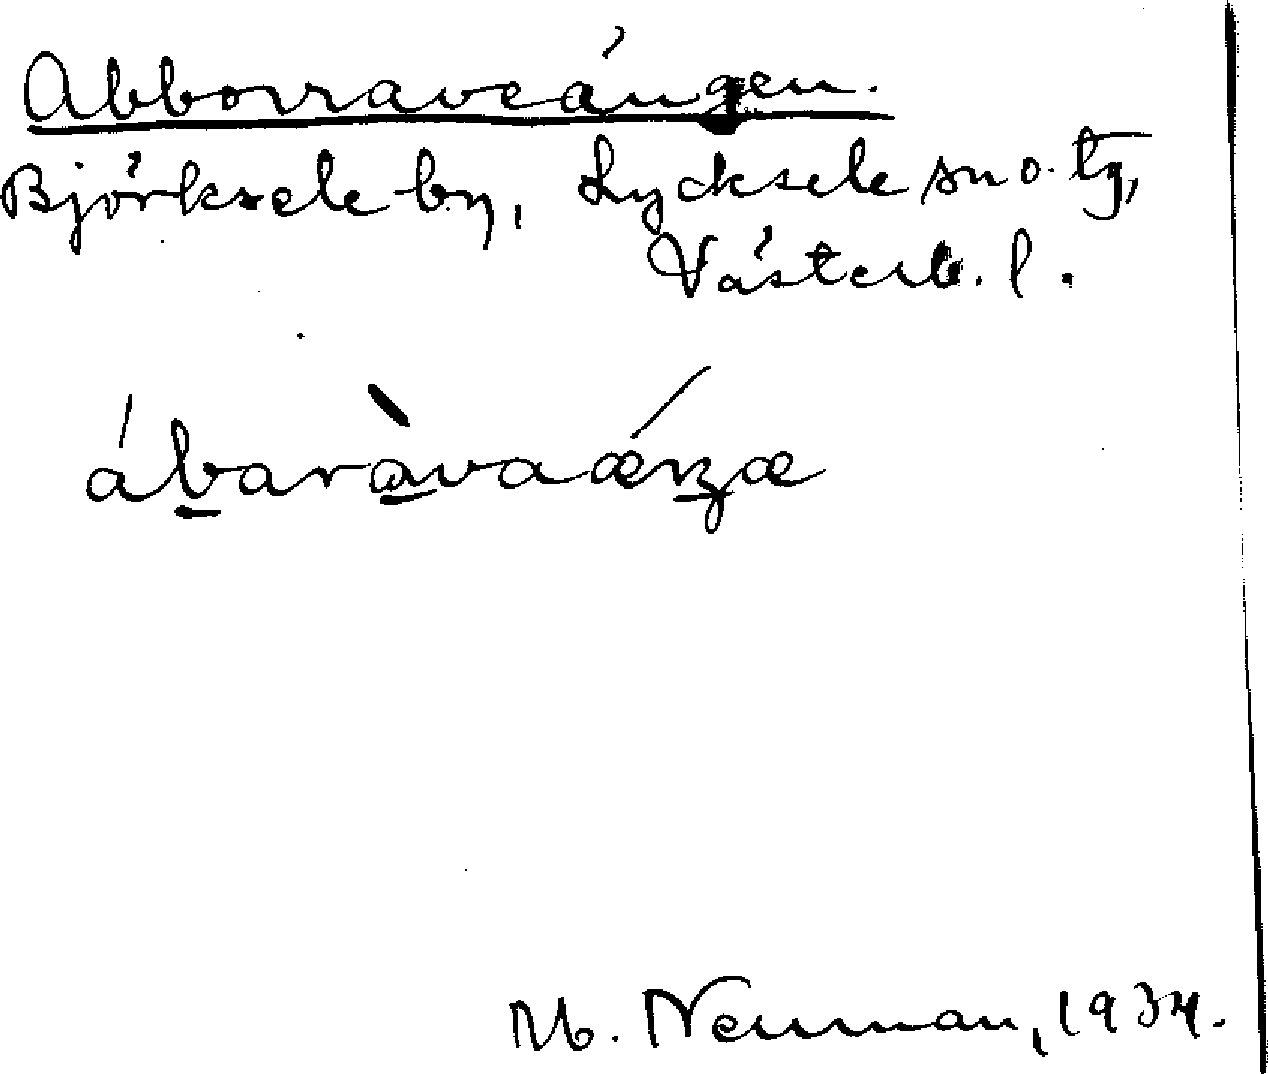 Abborraveängen.
Björksele by, Lycksele sn o. tg,
Västerb. l.
M. Neuman, 1934.